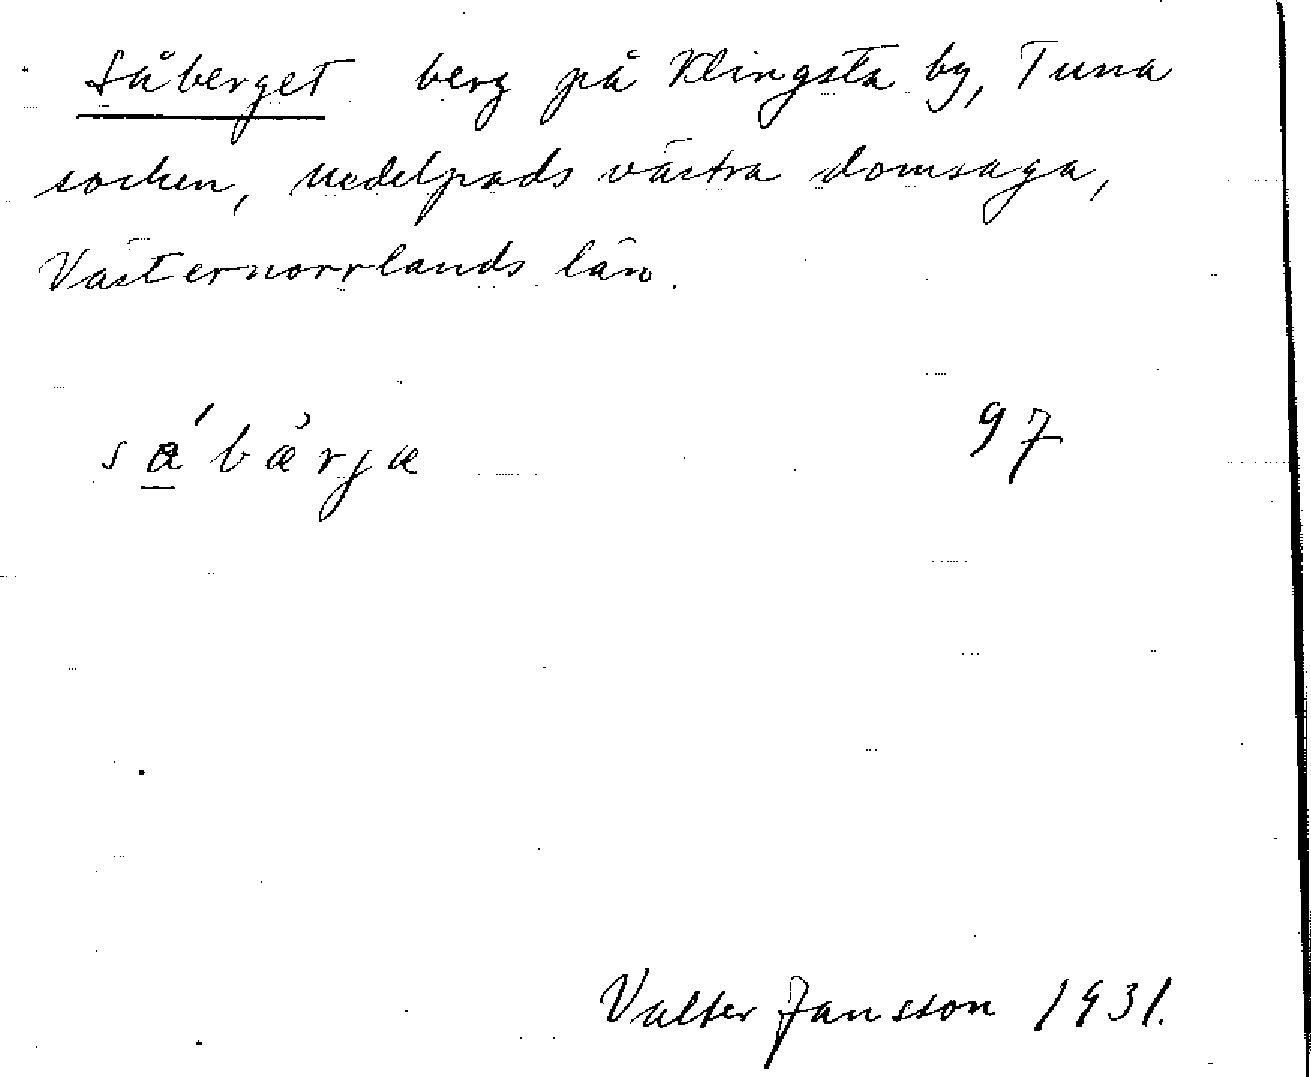 Såberget berg på Klingsta by, Tuna
socken, Medelpads västra domsaga,
Västernorrlands län.
sǻbæ̀rjæ 97
Valter Jansson 1931.